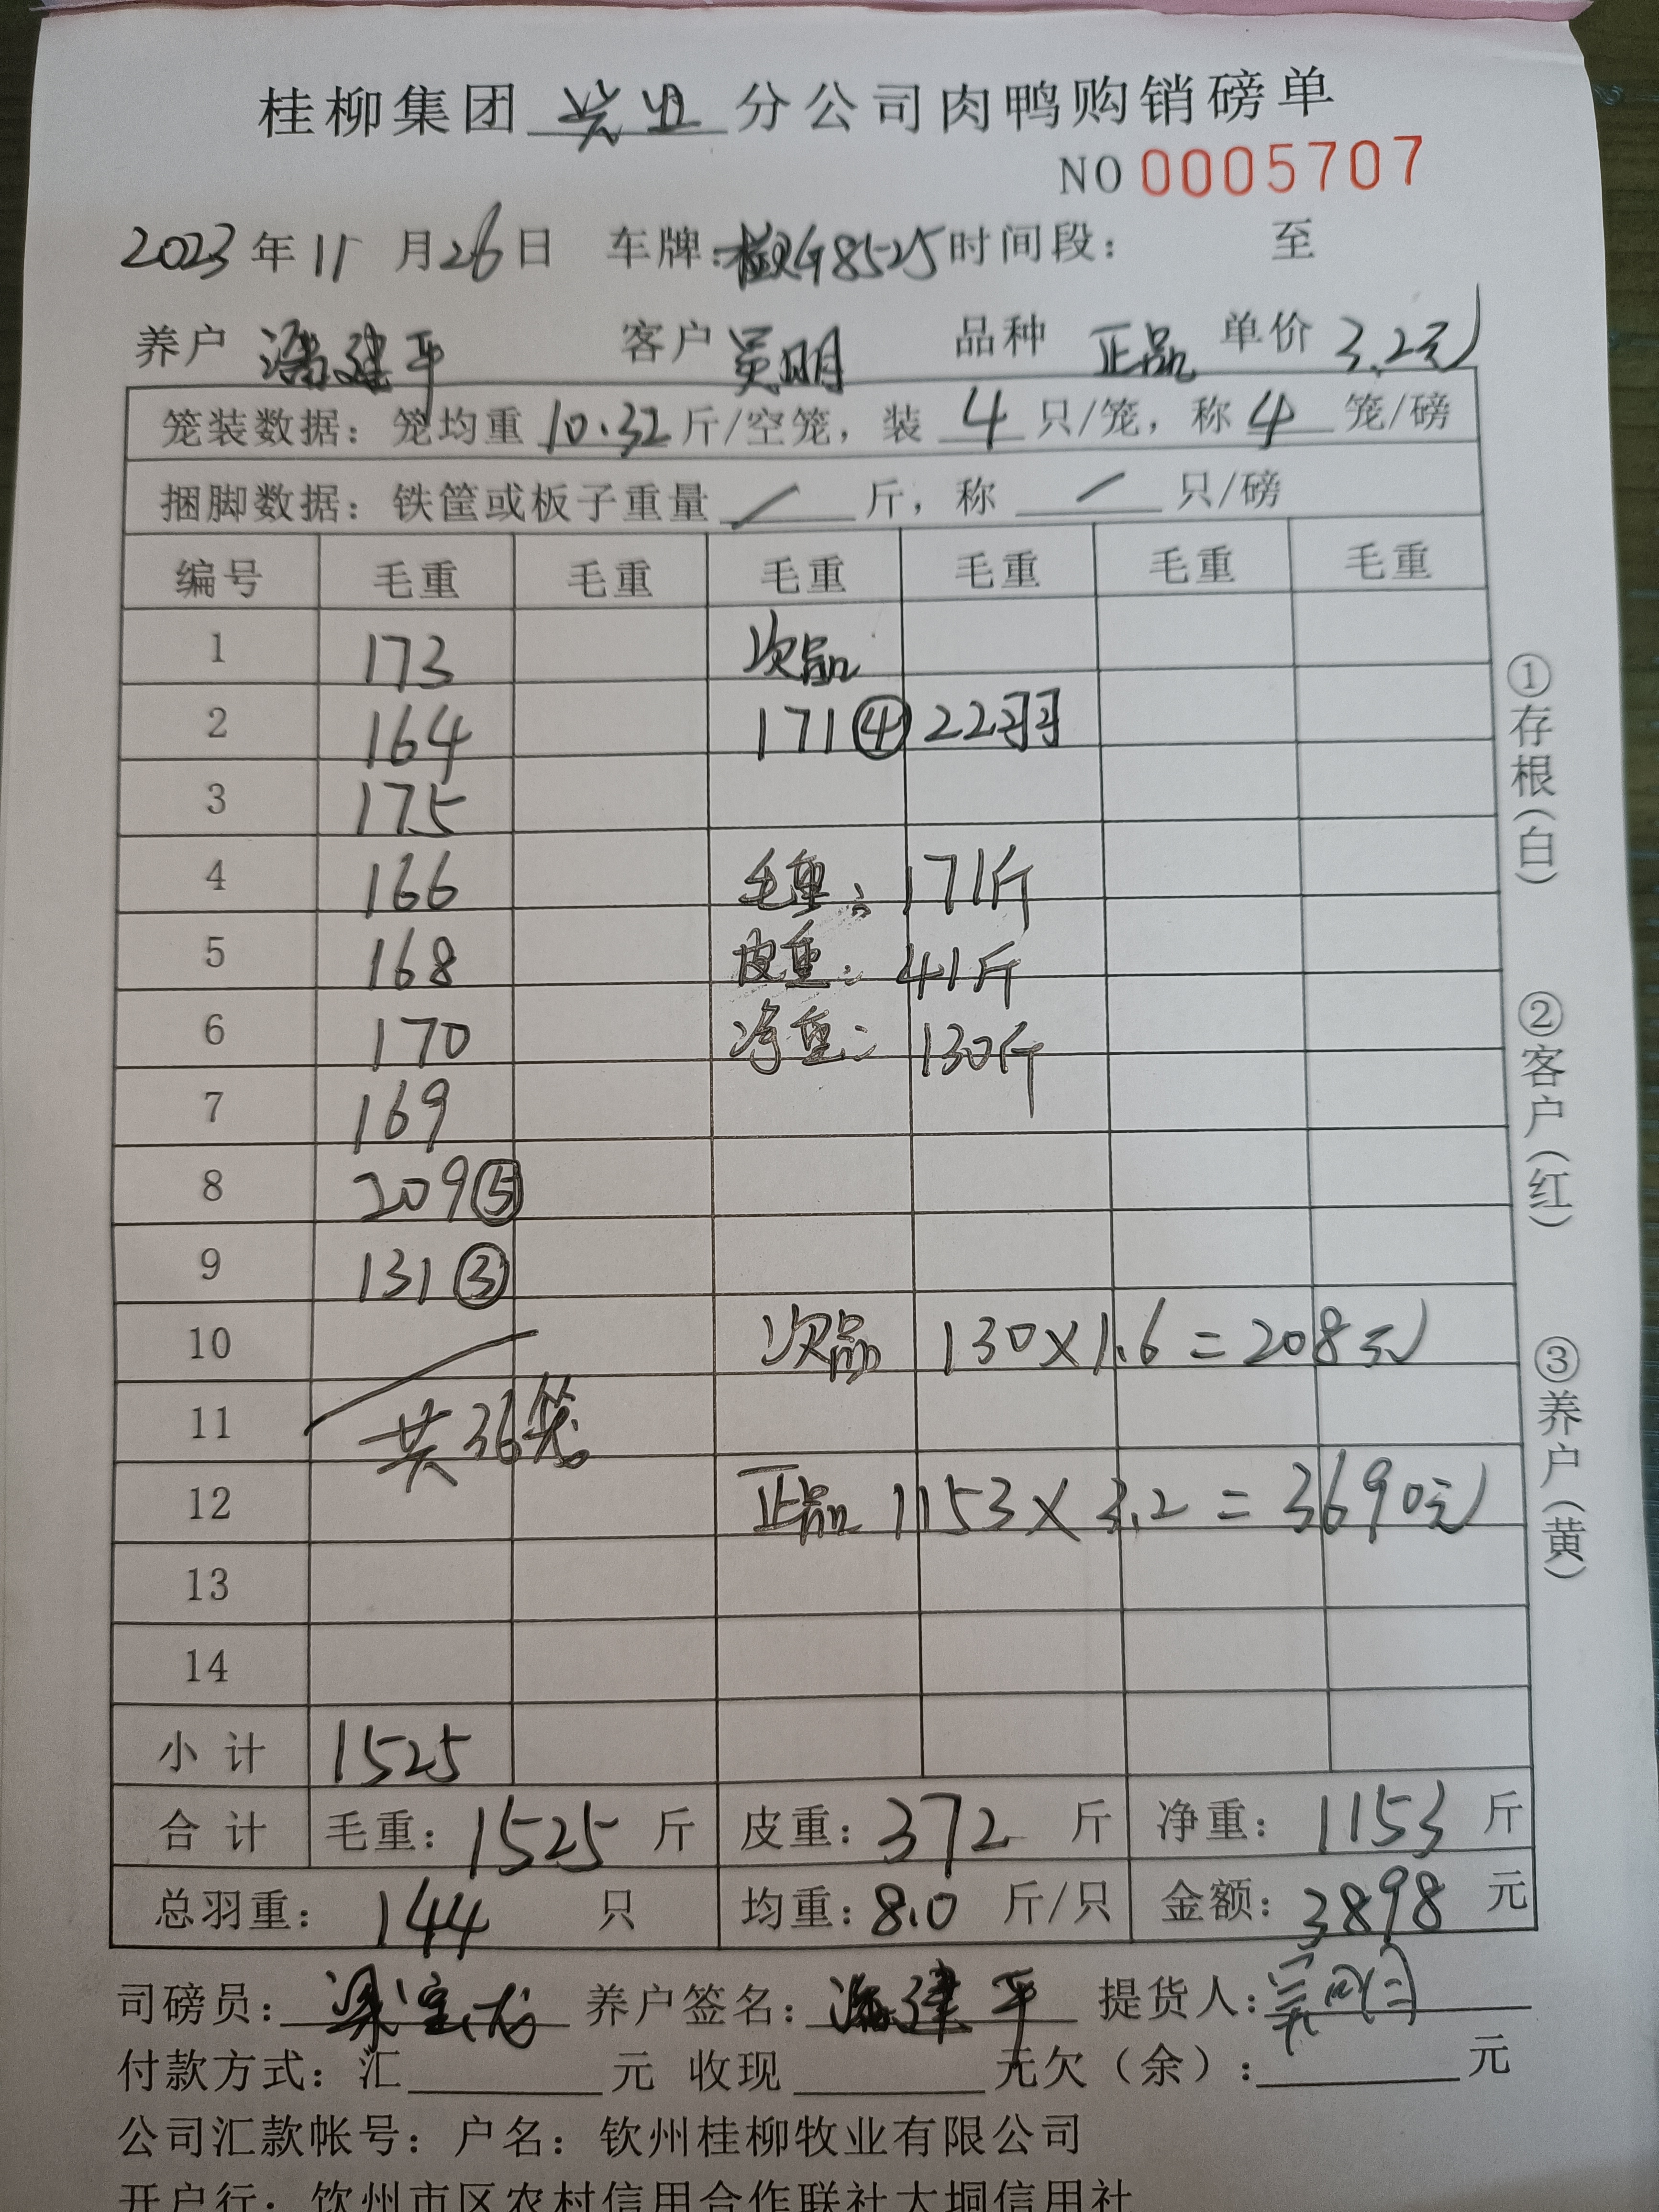 桂柳集团 兴业 分公司肉鸭购销磅单
NO 0005707
2023 年 11 月 26 日 车牌: G8525 时间段: 至
养户 潘建平 客户 吴明 品种 正品 单价 3.2元
笼装数据: 笼均重 10.32 斤/空笼, 装 4 只/笼, 称 4 笼/磅
捆脚数据: 铁筐或板子重量 / 斤, 称 / 只/磅
编号 毛重 毛重 毛重 毛重 毛重 毛重
1 173 次品
2 164 171④ 22羽
3 175
4 166 毛重: 171斤
5 168 皮重: 41斤
6 170 净重: 130斤
7 169
8 209⑤
9 131③
10 次品 130×1.6=208元
11 共36笼
12 正品 1153×3.2=3690元
13
14
小计 1525
合计 毛重: 1525 斤 皮重: 372 斤 净重: 1153 斤
总羽重: 144 只 均重: 8.0 斤/只 金额: 3898 元
司磅员: 养户签名: 潘建平 提货人:
付款方式: 汇 元 收现 元欠(余): 元
公司汇款帐号: 户名: 钦州桂柳牧业有限公司
开户行: 钦州市区农村信用合作联社大垌信用社
①存根(白)
②客户(红)
③养户(黄)